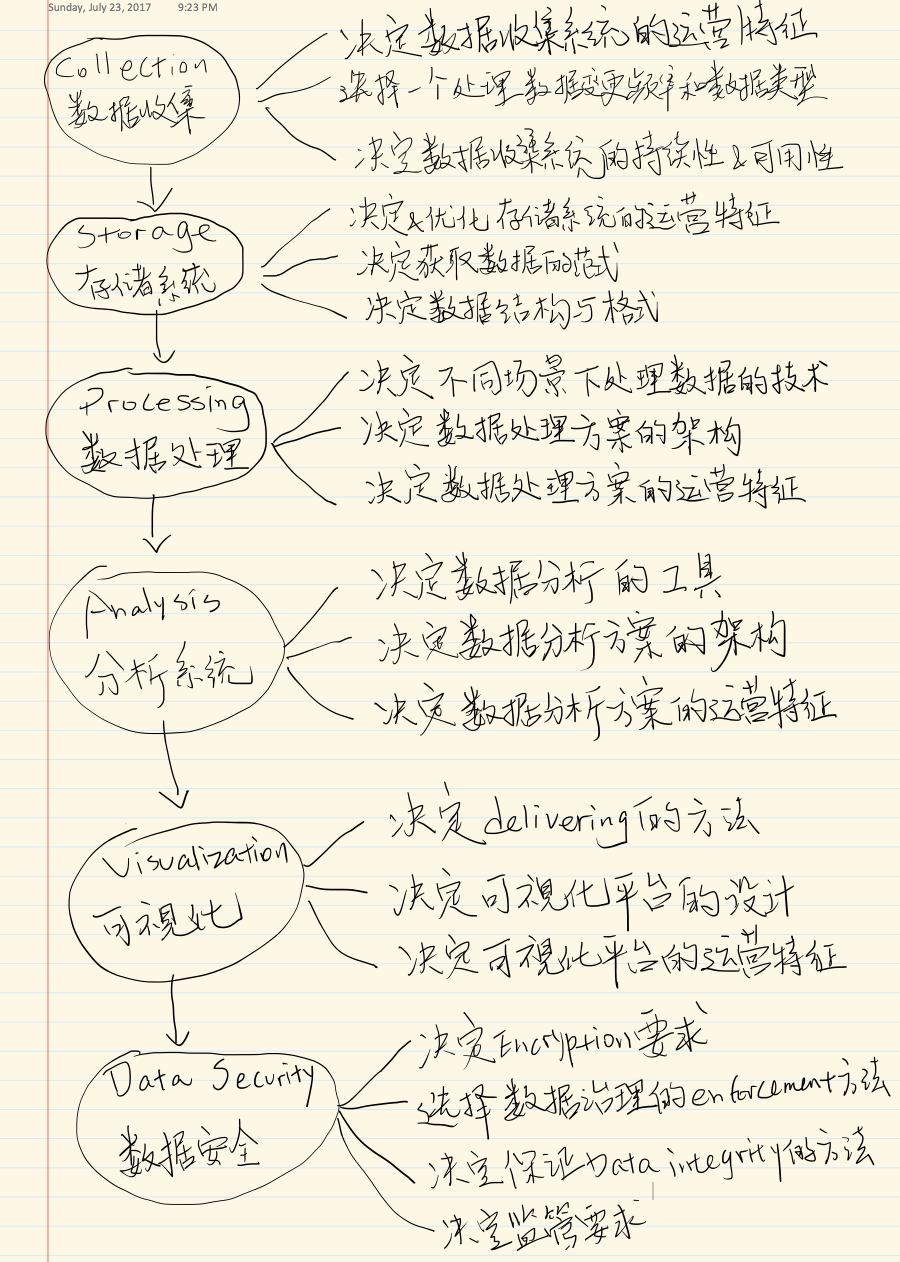 Sunday, July 23, 2017 9:23 PM
Collection
数据收集
决定数据收集系统的运营特征
选择一个处理数据变更频率和数据类型
决定数据收集系统的持续性&可用性
Storage
存储系统
决定&优化存储系统的运营特征
决定获取数据的范式
决定数据结构与格式
Processing
数据处理
决定不同场景下处理数据的技术
决定数据处理方案的架构
决定数据处理方案的运营特征
Analysis
分析系统
决定数据分析的工具
决定数据分析方案的架构
决定数据分析方案的运营特征
Visualization
可視化
决定delivering的方法
决定可視化平台的设计
决定可視化平台的运营特征
Data Security
数据安全
决定Encryption要求
选择数据治理的enforcement方法
决定保证Data integrity的方法
决定监管要求